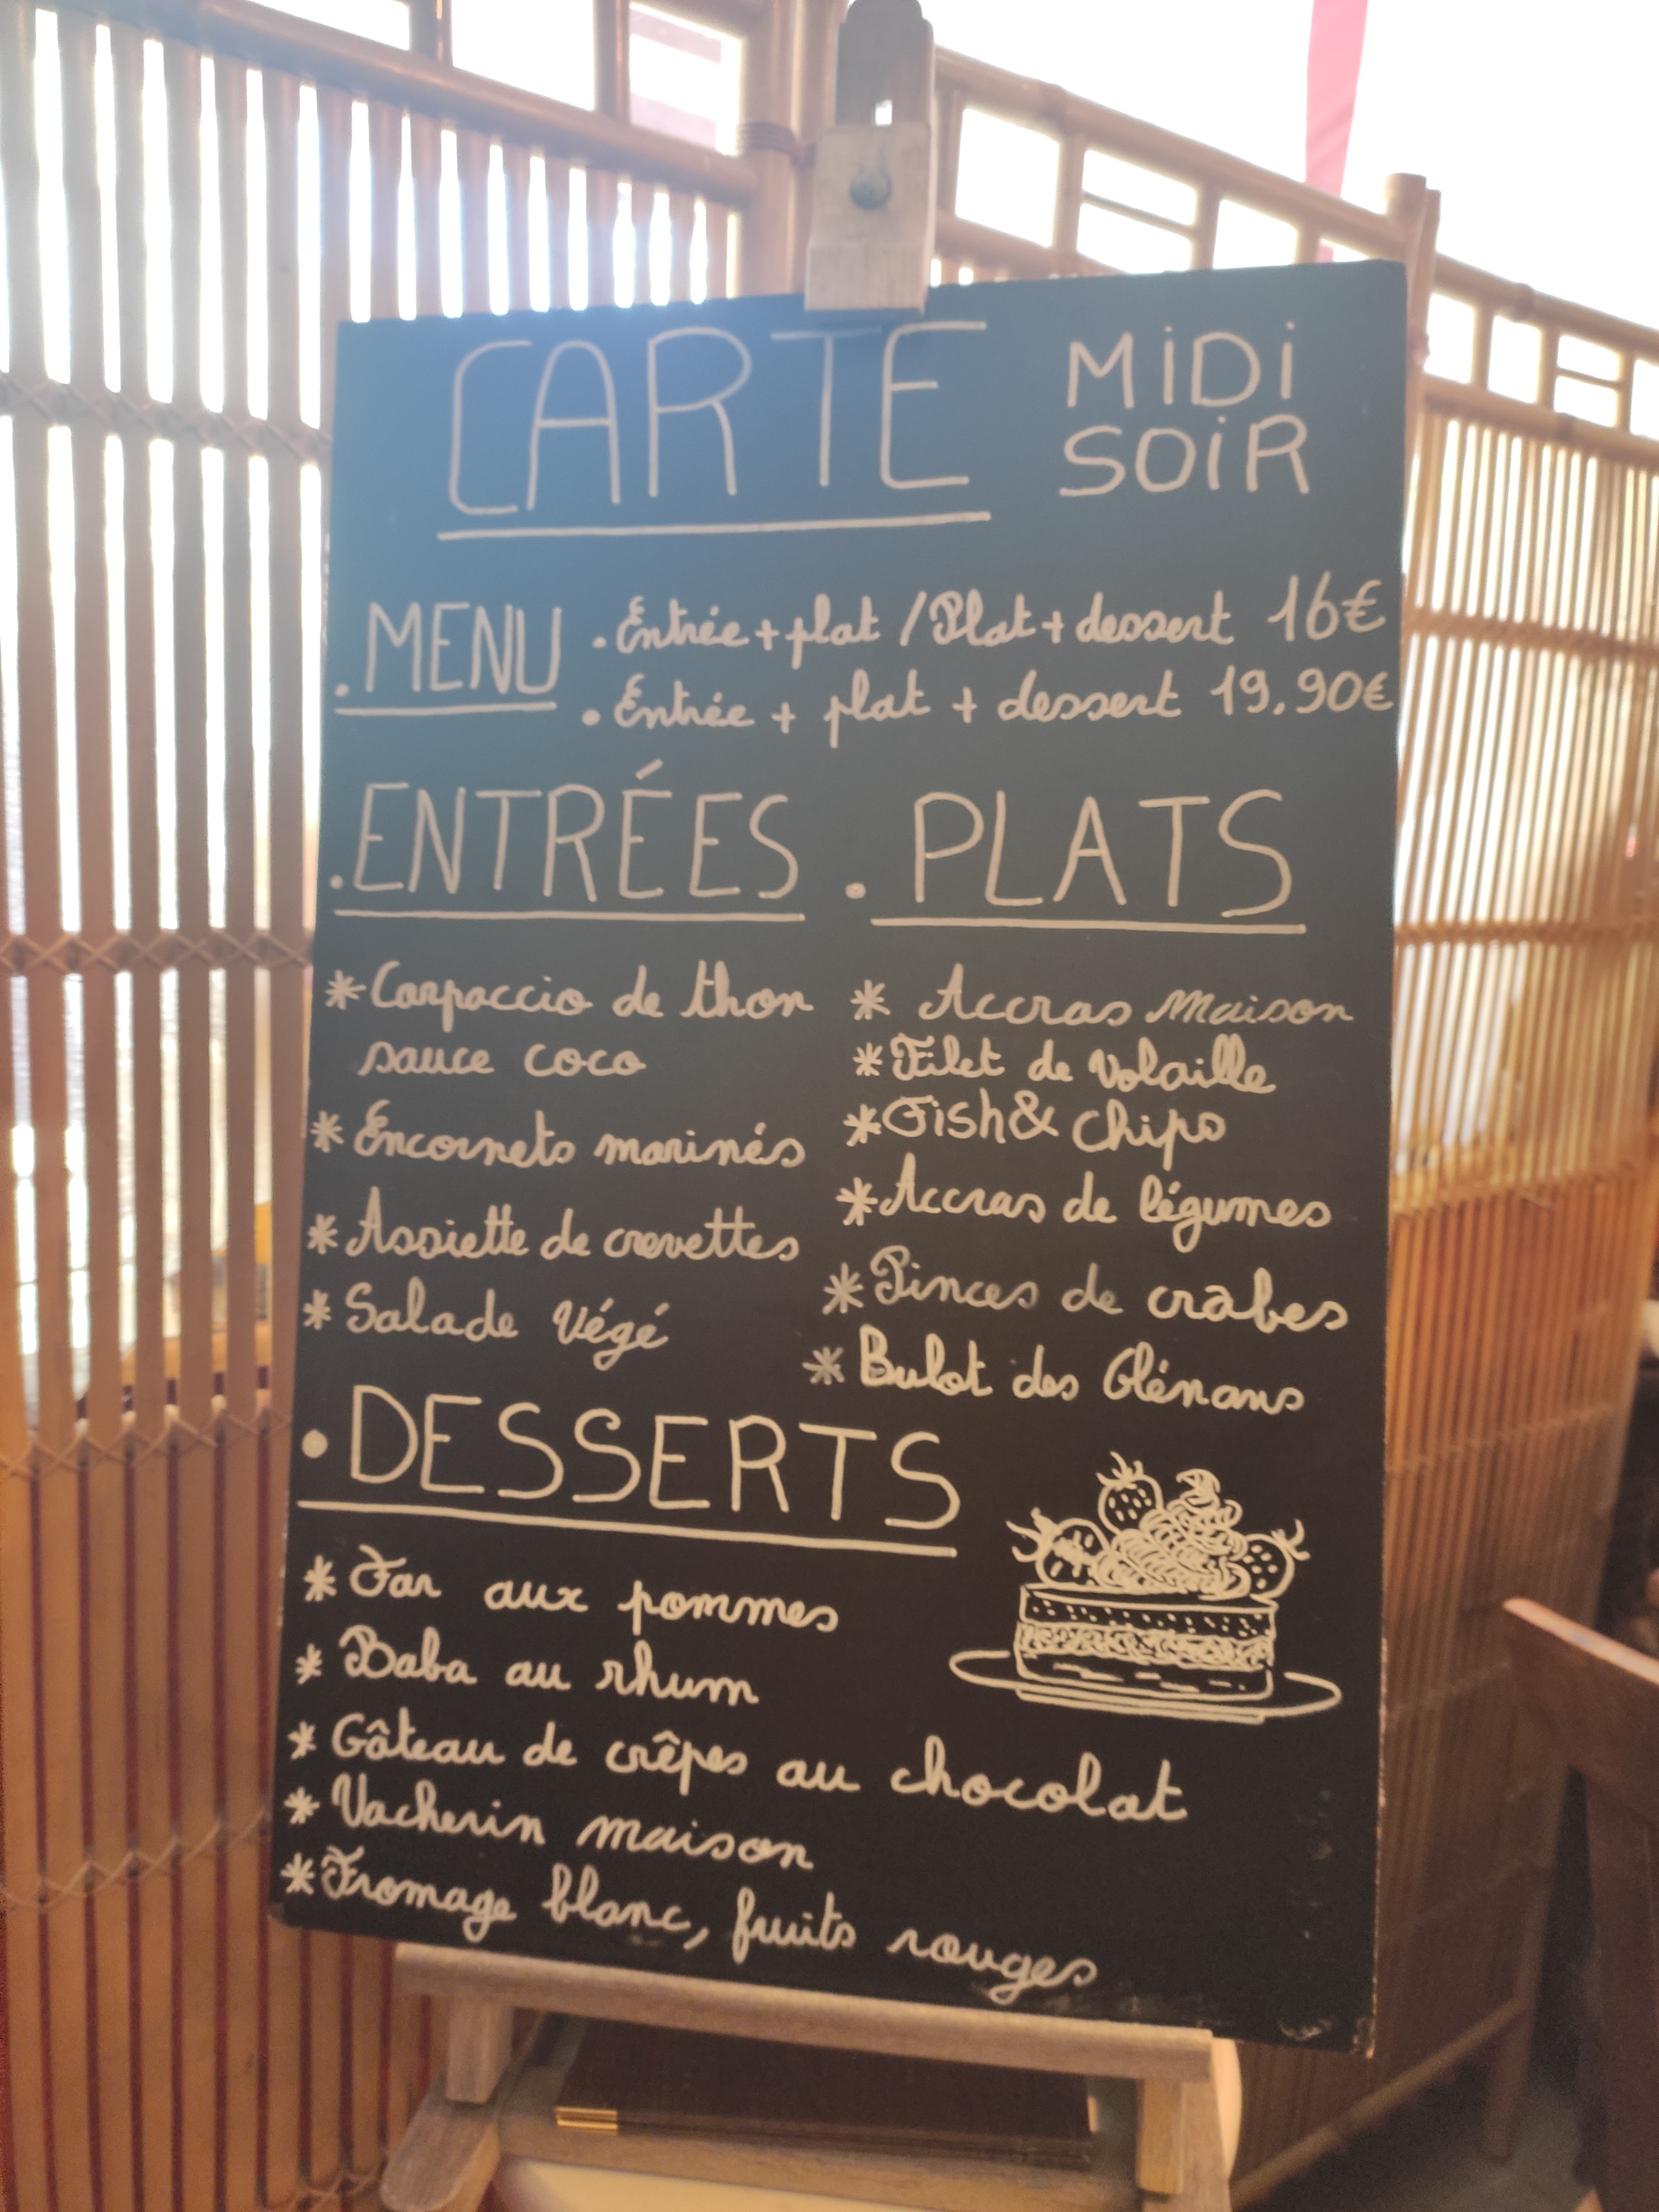 CARTE MiDi
SOiR
.MENU
. Entrée + plat / Plat + dessert 16€
. Entrée + plat + dessert 19,90€
.ENTRÉES
* Carpaccio de thon
sauce coco
* Encornets marinés
* Assiette de crevettes
* Salade Végé
. PLATS
* Accras Maison
* Filet de Volaille
* Fish & chips
* Accras de légumes
* Pinces de crâbes
* Bulot des Glénans
. DESSERTS
* Far aux pommes
* Baba au rhum
* Gâteau de crêpes au chocolat
* Vacherin maison
* Fromage blanc, fruits rouges